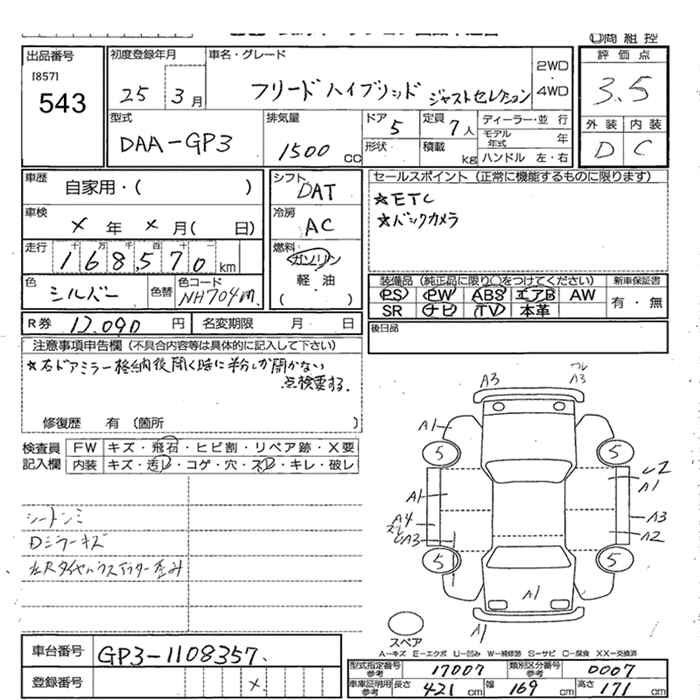 出品番号
[857]
543
初度登録年月
25 3月
車名・グレード
フリードハイブリッド ジャストセレクション
2WD
4WD
評価点
3.5
外装 内装
D C
型式
DAA-GP3
排気量
1500 cc
ドア 5
形状
定員 7人
積載 kg
ディーラー・並行
モデル年式 年
ハンドル 左・右
車歴
自家用・( )
車検
× 年 × 月( 日)
走行
十 万 千 百 十
168,570 km
色
シルバー
色替
色コード
NH704m
シフト
DAT
冷房
AC
燃料
ガソリン
軽・油
( )
セールスポイント (正常に機能するものに限ります)
★ETC
★バックカメラ
装備品 (純正品に限り○をつけてください)
新車保証書
PS PW ABS エアB AW
SR ナビ TV 本革
有・無
R券 12,090 円
名変期限 月 日
後日品
注意事項申告欄 (不具合内容等は具体的に記入して下さい)
★右ドアミラー格納後開く時に半分しか開かない
点検要する。
修復歴 有 (箇所 )
検査員
記入欄
FW キズ・飛石・ヒビ割・リペア跡・X要
内装 キズ・汚レ・コゲ・穴・スレ・キレ・破レ
シートシミ
Dミラーキズ
A3
A3
A1
5
5
A1
A1
A4
A3
A3
A2
5
5
A1
A1
スペア
A−キズ E−エクボ U−凹み W−補修跡 S−サビ C−腐食 XX−交換済
車台番号
GP3-1108357
登録番号
×
型式指定番号
参考
17007
類別区分番号
参考
0007
車庫証明用
参考
長さ 421 cm 幅 169 cm 高さ 171 cm